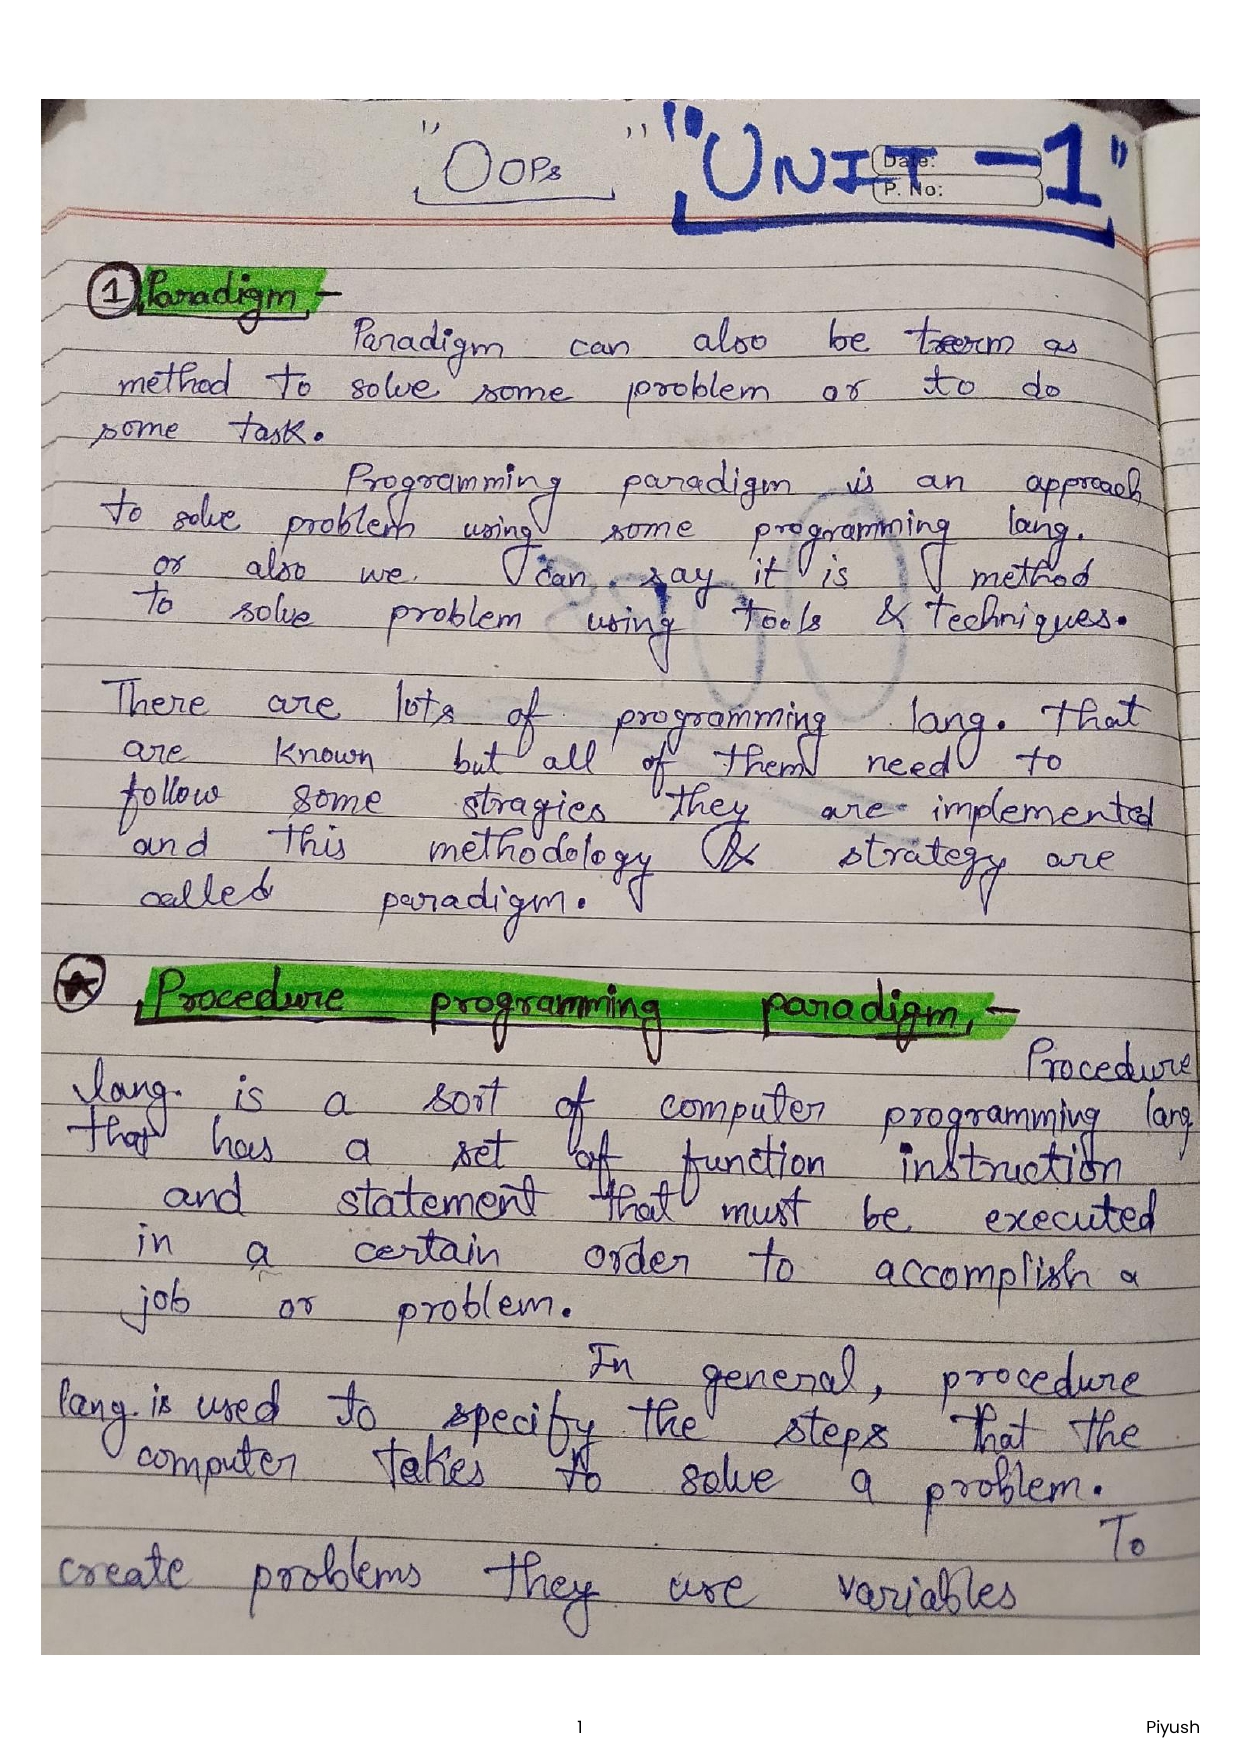 "OOPs" "UNIT-1"
Date:
P. No:
① Paradigm -
Paradigm can also be term as
method to solve some problem or to do
some task.
Programming paradigm is an approach
to solve problem using some programming lang.
or also we can say it is method
to solve problem using tools & techniques.
There are lots of programming lang. that
are known but all of them need to
follow some stragies they are implemented
and this methodology & strategy are
called paradigm.
★ Procedure programming paradigm, -
Procedure
lang. is a sort of computer programming lang
that has a set of function instruction
and statement that must be executed
in a certain order to accomplish a
job or problem.
In general, procedure
lang. is used to specify the steps that the
computer takes to solve a problem.
To
create problems they use variables
1
Piyush